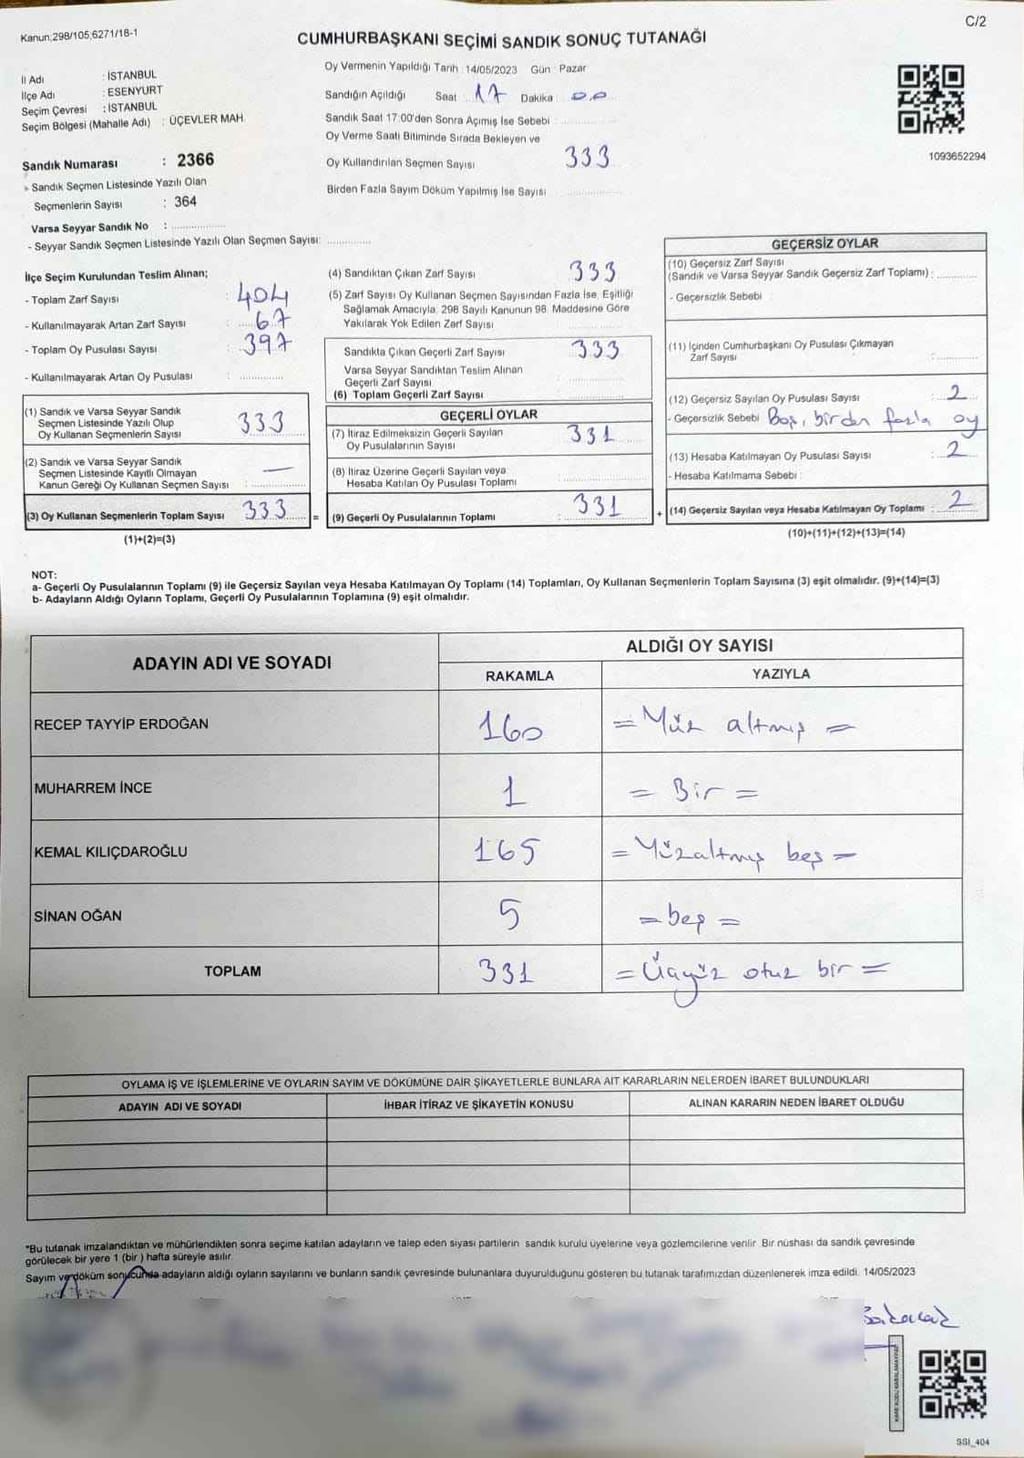 Kanun:298/105;6271/18-1
C/2
CUMHURBAŞKANI SEÇİMİ SANDIK SONUÇ TUTANAĞI
İl Adı : İSTANBUL
İlçe Adı : ESENYURT
Seçim Çevresi : İSTANBUL
Seçim Bölgesi (Mahalle Adı) : ÜÇEVLER MAH.
Oy Vermenin Yapıldığı Tarih : 14/05/2023 Gün : Pazar
Sandığın Açıldığı Saat 17 Dakika 00
Sandık Saat 17:00'den Sonra Açımış İse Sebebi :
Oy Verme Saati Bitiminde Sırada Bekleyen ve
Oy Kullandırılan Seçmen Sayısı 333
Birden Fazla Sayım Döküm Yapılmış İse Sayısı
1093652294
Sandık Numarası : 2366
- Sandık Seçmen Listesinde Yazılı Olan
Seçmenlerin Sayısı : 364
Varsa Seyyar Sandık No :
- Seyyar Sandık Seçmen Listesinde Yazılı Olan Seçmen Sayısı:
İlçe Seçim Kurulundan Teslim Alınan;
- Toplam Zarf Sayısı : 404
- Kullanılmayarak Artan Zarf Sayısı : 67
- Toplam Oy Pusulası Sayısı : 397
- Kullanılmayarak Artan Oy Pusulası :
(1) Sandık ve Varsa Seyyar Sandık
Seçmen Listesinde Yazılı Olup
Oy Kullanan Seçmenlerin Sayısı 333
(2) Sandık ve Varsa Seyyar Sandık
Seçmen Listesinde Kayıtlı Olmayan
Kanun Gereği Oy Kullanan Seçmen Sayısı : —
(3) Oy Kullanan Seçmenlerin Toplam Sayısı 333 =
(1)+(2)=(3)
(4) Sandıktan Çıkan Zarf Sayısı 333
(5) Zarf Sayısı Oy Kullanan Seçmen Sayısından Fazla İse, Eşitliği
Sağlamak Amacıyla, 298 Sayılı Kanunun 98. Maddesine Göre
Yakılarak Yok Edilen Zarf Sayısı
Sandıkta Çıkan Geçerli Zarf Sayısı 333
Varsa Seyyar Sandıktan Teslim Alınan
Geçerli Zarf Sayısı
(6) Toplam Geçerli Zarf Sayısı
GEÇERLİ OYLAR
(7) İtiraz Edilmeksizin Geçerli Sayılan
Oy Pusulalarının Sayısı 331
(8) İtiraz Üzerine Geçerli Sayılan veya
Hesaba Katılan Oy Pusulası Toplamı
(9) Geçerli Oy Pusulalarının Toplamı : 331 +
GEÇERSİZ OYLAR
(10) Geçersiz Zarf Sayısı
(Sandık ve Varsa Seyyar Sandık Geçersiz Zarf Toplamı) :
- Geçersizlik Sebebi :
(11) İçinden Cumhurbaşkanı Oy Pusulası Çıkmayan
Zarf Sayısı :
(12) Geçersiz Sayılan Oy Pusulası Sayısı : 2
- Geçersizlik Sebebi : Boş, birden fazla oy
(13) Hesaba Katılmayan Oy Pusulası Sayısı : 2
- Hesaba Katılmama Sebebi :
(14) Geçersiz Sayılan veya Hesaba Katılmayan Oy Toplamı : 2
(10)+(11)+(12)+(13)=(14)
NOT:
a- Geçerli Oy Pusulalarının Toplamı (9) ile Geçersiz Sayılan veya Hesaba Katılmayan Oy Toplamı (14) Toplamları, Oy Kullanan Seçmenlerin Toplam Sayısına (3) eşit olmalıdır. (9)+(14)=(3)
b- Adayların Aldığı Oyların Toplamı, Geçerli Oy Pusulalarının Toplamına (9) eşit olmalıdır.
ADAYIN ADI VE SOYADI
ALDIĞI OY SAYISI
RAKAMLA YAZIYLA
RECEP TAYYİP ERDOĞAN 160 = Yüz altmış =
MUHARREM İNCE 1 = Bir =
KEMAL KILIÇDAROĞLU 165 = Yüzaltmış beş =
SİNAN OĞAN 5 = beş =
TOPLAM 331 = Üçyüz otuz bir =
OYLAMA İŞ VE İŞLEMLERİNE VE OYLARIN SAYIM VE DÖKÜMÜNE DAİR ŞİKAYETLERLE BUNLARA AİT KARARLARIN NELERDEN İBARET BULUNDUKLARI
ADAYIN ADI VE SOYADI İHBAR İTİRAZ VE ŞİKAYETİN KONUSU ALINAN KARARIN NEDEN İBARET OLDUĞU
*Bu tutanak imzalandıktan ve mühürlendikten sonra seçime katılan adayların ve talep eden siyasi partilerin sandık kurulu üyelerine veya gözlemcilerine verilir. Bir nüshası da sandık çevresinde
görülecek bir yere 1 (bir ) hafta süreyle asılır.
Sayım ve döküm sonucunda adayların aldığı oyların sayılarını ve bunların sandık çevresinde bulunanlara duyurulduğunu gösteren bu tutanak tarafımızdan düzenlenerek imza edildi. 14/05/2023
SSI_404